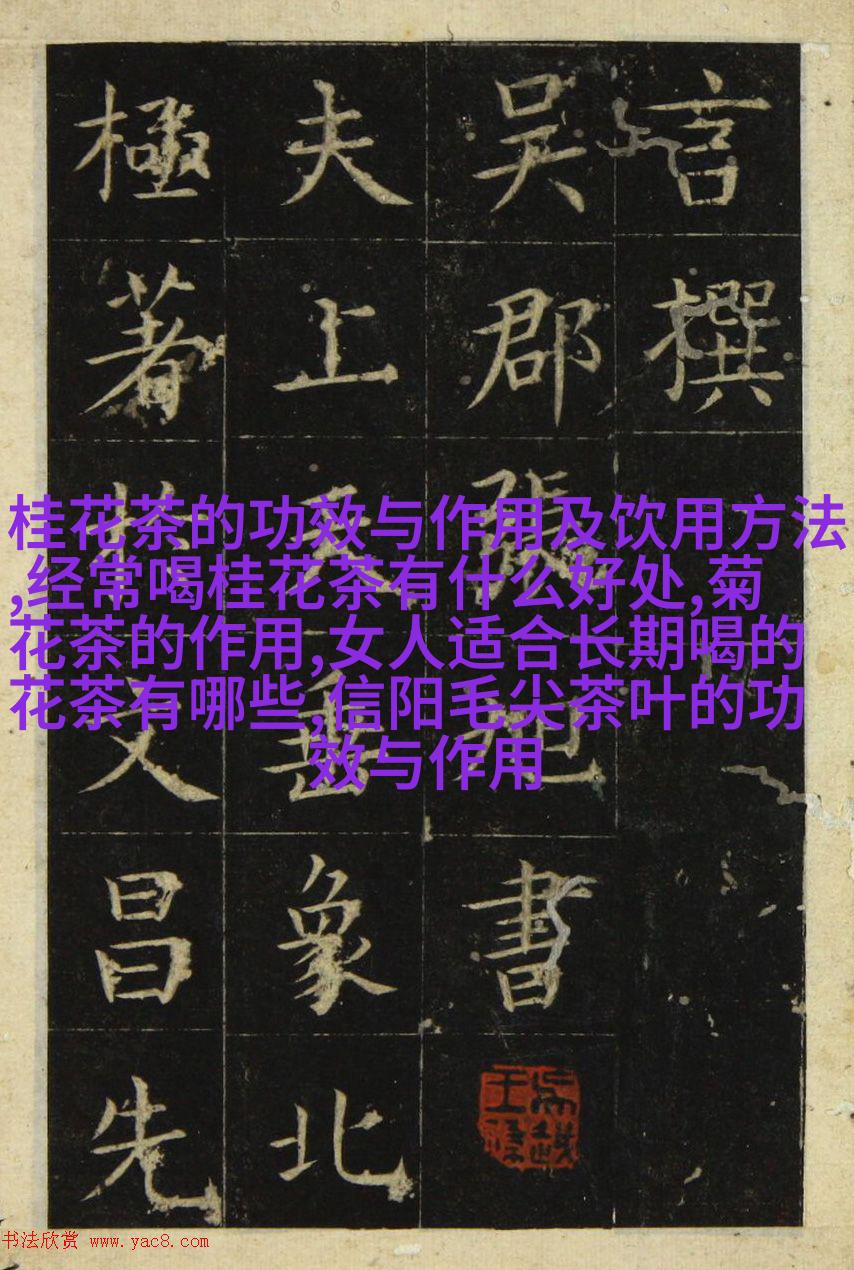 言撰
吳郡張旭書
夫上天垂象北
極著於文昌先
桂花茶的功效与作用及饮用方法
,经常喝桂花茶有什么好处,菊
花茶的作用,女人适合长期喝的
花茶有哪些,信阳毛尖茶叶的功
效与作用
书法欣赏 www.yac8.com